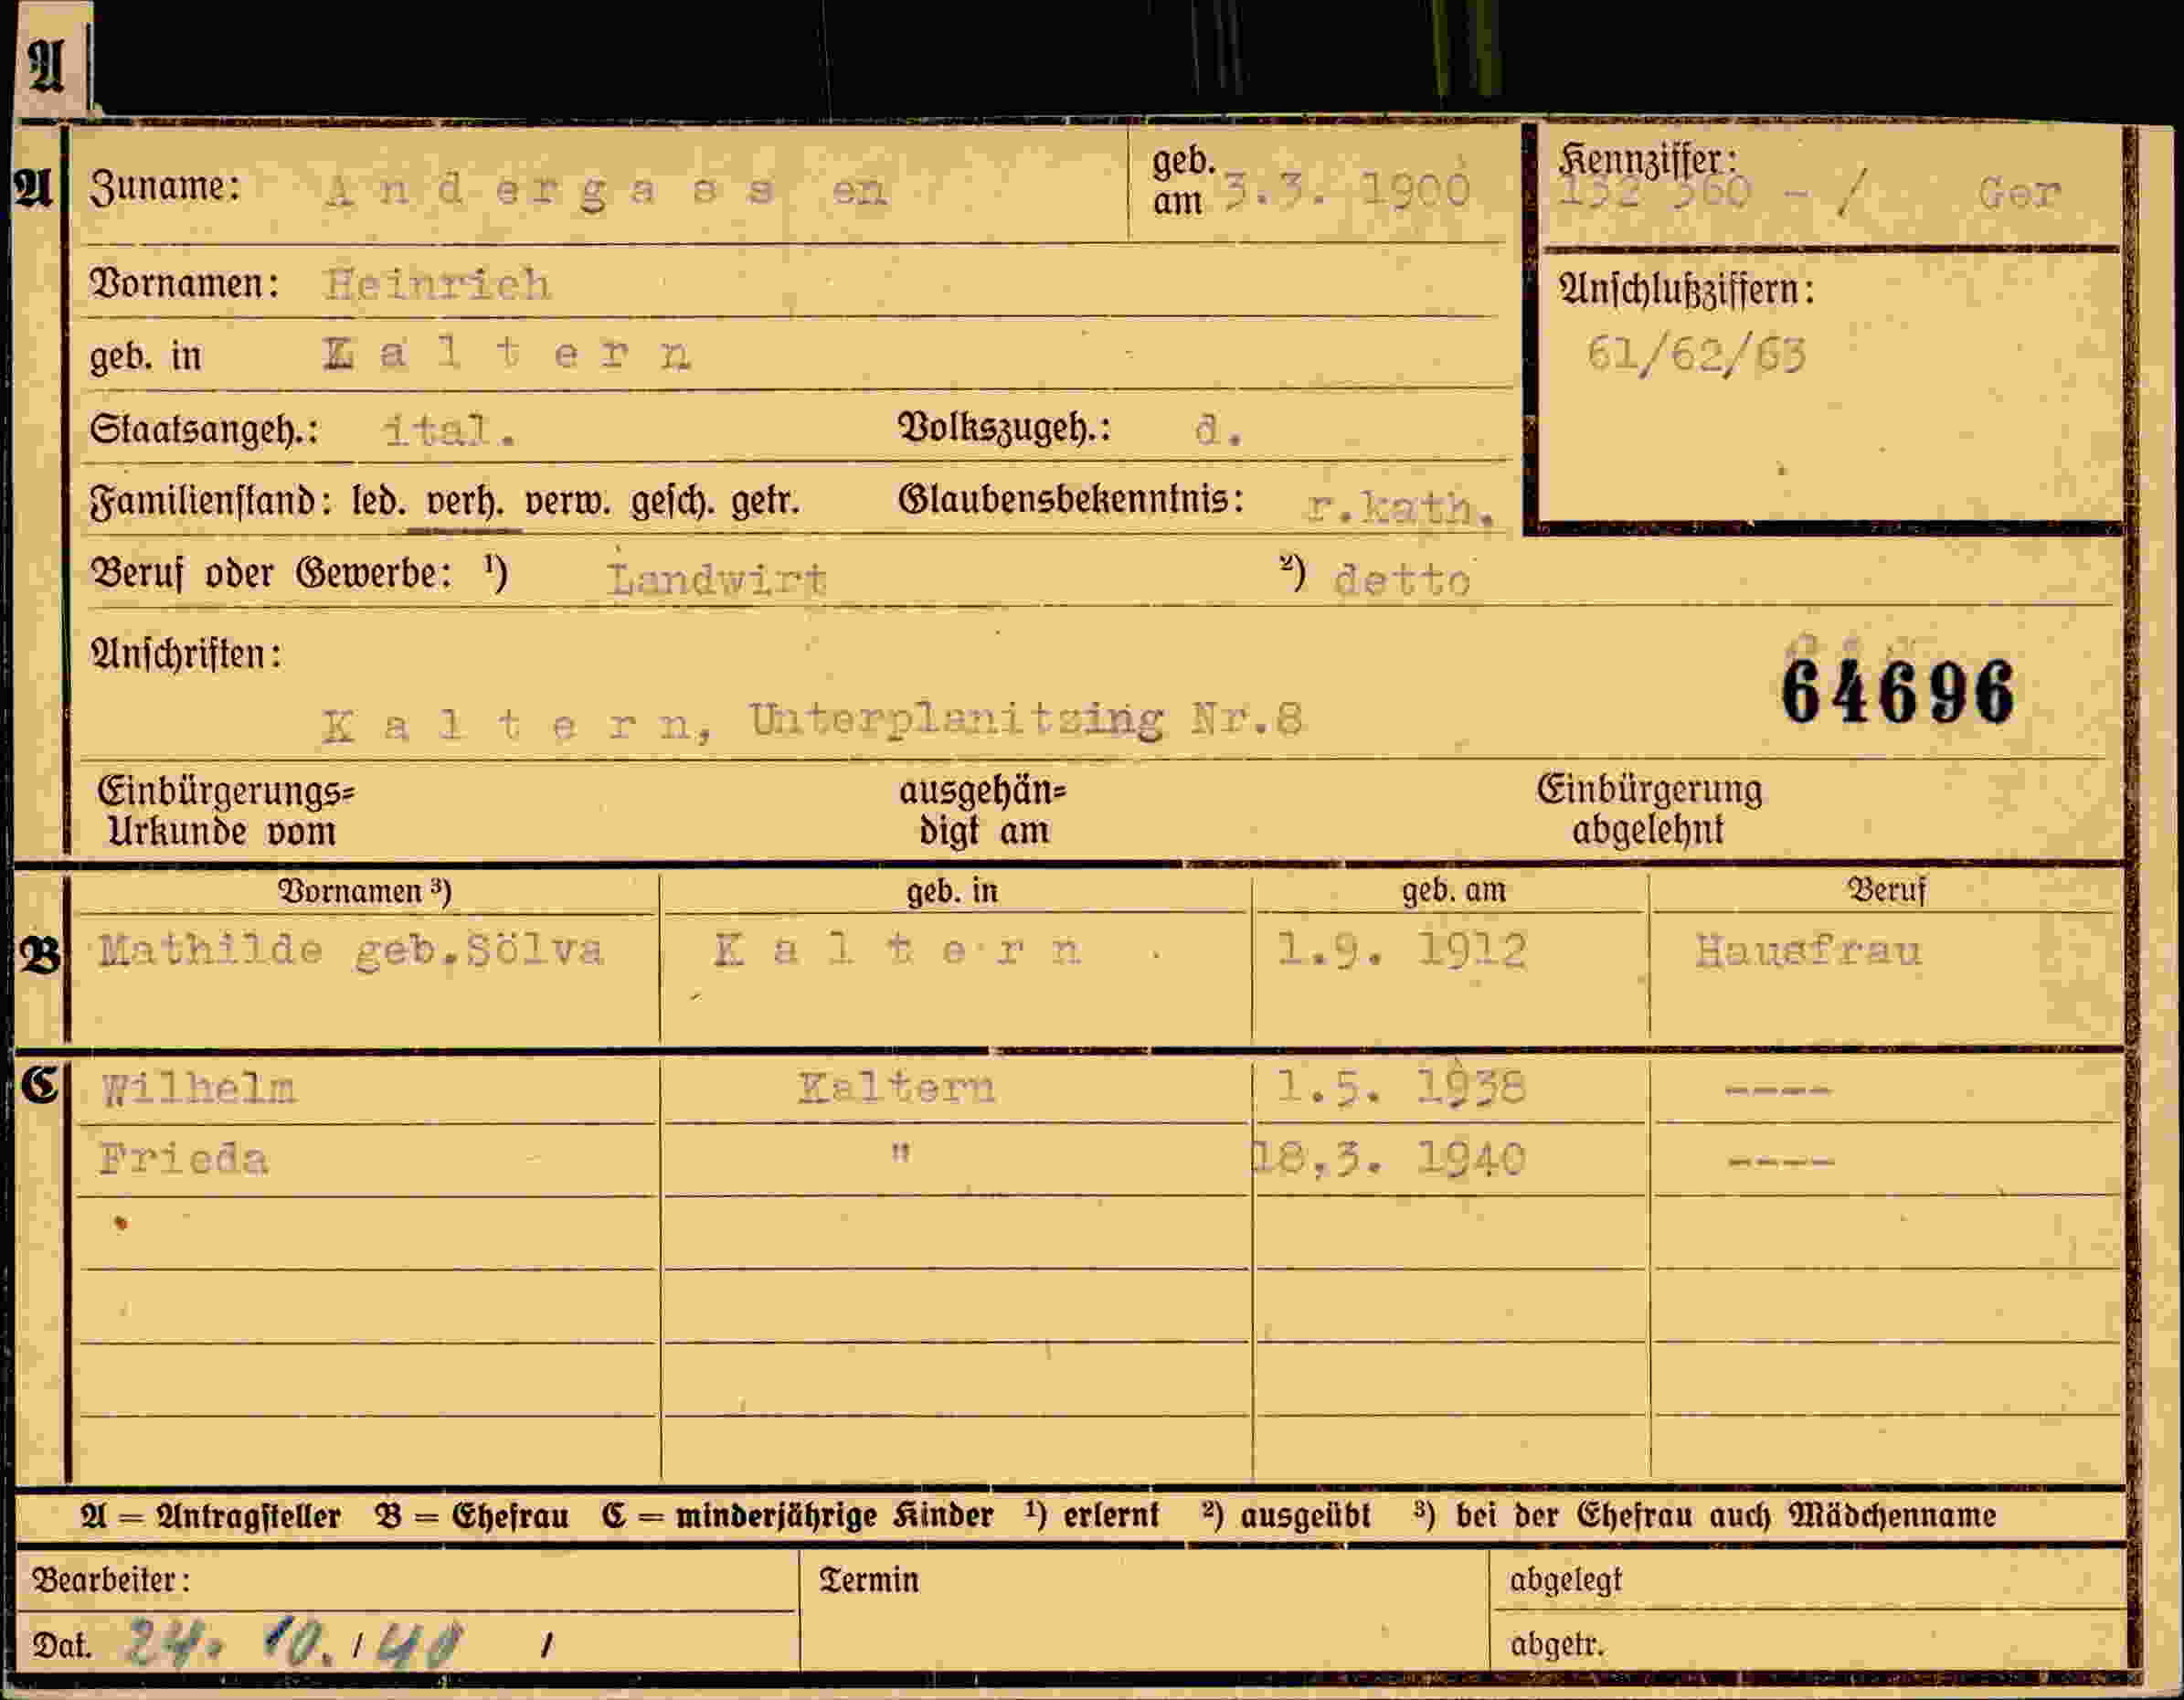 A
A Zuname: Andergassen geb. am 3.3. 1900 Kennziffer: 132 360 - / Ger
Vornamen: Heinrich Anschlußziffern:
geb. in Kaltern 61/62/63
Staatsangeh.: ital. Volkszugeh.: d.
Familienstand: led. verh. verw. gesch. getr. Glaubensbekenntnis: r.kath.
Beruf oder Gewerbe: ¹) Landwirt ²) detto
Anschriften:
64696
Kaltern, Unterplanitzing Nr.8
Einbürgerungs= ausgehän= Einbürgerung
Urkunde vom digt am abgelehnt
Vornamen ³) geb. in geb. am Beruf
B Mathilde geb.Sölva Kaltern 1.9. 1912 Hausfrau
C Wilhelm Kaltern 1.5. 1938 ----
Frieda " 18.3. 1940 ----
A = Antragsteller B = Ehefrau C = minderjährige Kinder ¹) erlernt ²) ausgeübt ³) bei der Ehefrau auch Mädchenname
Bearbeiter: Termin abgelegt
Dat. 24. 10. / 40 / abgetr.